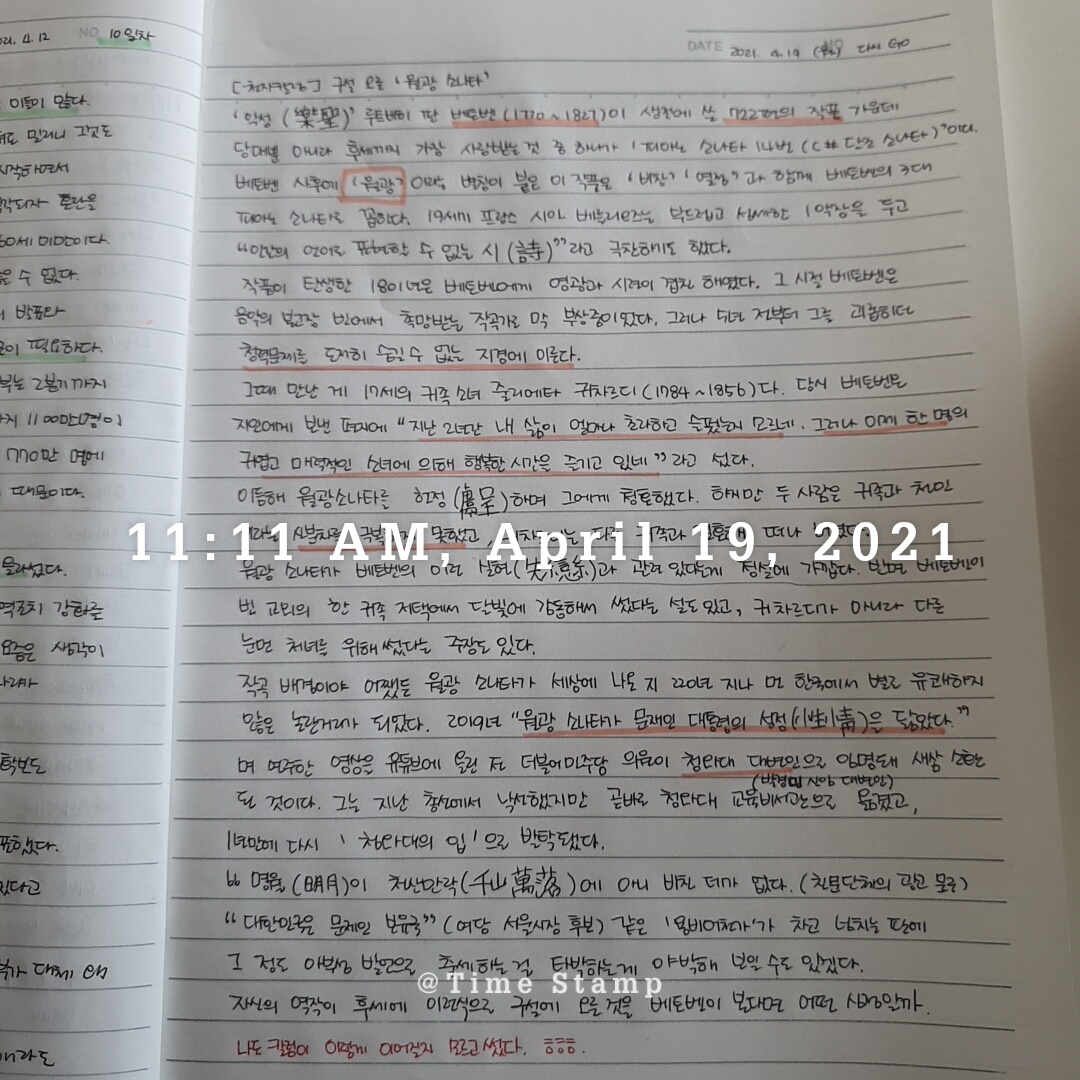 021. 4. 12 NO. 10일차
이들이 많다.
60세 미만이다.
을 수 없다.
이 필요하다.
770만 명에
때문이다.
올라섰다.
요즘은 생각이
DATE 2021. 4. 19 (월) 다시 GO
구설 오른 '월광 소나타'
'악성 (樂聖)' 루트비히 판 베토벤 (1770 ~ 1827)이 생전에 쓴 722편의 작품 가운데
당대뿐 아니라 후세까지 가장 사랑받는 것 중 하나가 '피아노 소나타 14번 (C# 단조 소나타)'이다.
베토벤 사후에 '월광' 이라는 별칭이 붙은 이 작품은 '비창' '열정'과 함께 베토벤의 3대
피아노 소나타로 꼽힌다. 19세기 프랑스 시인 베를리오즈는 부드럽고 섬세한 1악장을 두고
"인간의 언어로 표현할 수 없는 시 (詩)" 라고 극찬하기도 했다.
작품이 탄생한 1801년은 베토벤에게 영광과 시련이 겹친 해였다. 그 시절 베토벤은
음악의 본고장 빈에서 촉망받는 작곡가로 막 부상중이었다. 그러나 5년 전부터 그를 괴롭히던
청력문제를 도저히 숨길 수 없는 지경에 이른다.
그때 만난 게 17세의 귀족 소녀 줄리에타 귀차르디 (1784 ~ 1856)다. 당시 베토벤은
지인에게 보낸 편지에 "지난 2년간 내 삶이 얼마나 초라하고 슬펐는지 모르네. 그러나 이제 한 명의
귀엽고 매력적인 소녀에 의해 행복한 시간을 즐기고 있네" 라고 썼다.
이듬해 월광소나타를 헌정 하며 그에게 청혼했다. 하지만 두 사람은 귀족과 천민
못했고, 다른 귀족과 결혼해 떠나 버렸다.
월광 소나타가 베토벤의 이런 실연 과 관련 있다는게 정설에 가깝다. 반면 베토벤이
빈 교외의 한 귀족 저택에서 달빛에 감동해서 썼다는 설도 있고, 귀차르디가 아니라 다른
눈먼 처녀를 위해 썼다는 주장도 있다.
작곡 배경이야 어쨌든 월광 소나타가 세상에 나온 지 220년 지나 먼 한국에서 별로 유쾌하지
않은 논란거리가 되었다. 2019년 "월광 소나타가 문재인 대통령의 성정(性情)을 닮았다."
며 연주한 영상을 유튜브에 올린 전 더불어민주당 의원이 청와대 대변인으로 임명돼 새삼
(박경미 신임 대변인)
된 것이다. 그는 지난 총선에서 낙선했지만 곧바로 청와대 교육비서관으로 옮겼고,
1년만에 다시 '청와대의 입'으로 발탁됐다.
"명월 (明月)이 천산만락(千山萬落)에 아니 비친 데가 없다. (친문단체의 광고 문구)
"대한민국은 문재인 보유국" (여당 서울시장 후보) 같은 '용비어천가'가 차고 넘치는 판에
그 정도 아부성 발언으로 출세하는걸 타박하는게 야박해 보일 수도 있겠다.
자신의 역작이 후세에 이런식으로 구설에 오른 것을 베토벤이 본다면 어떤 심정일까.
나도 칼럼이 이렇게 이어질지 모르고 썼다. ㅎㅎㅎ.
11:11 AM, April 19, 2021
@Time Stamp